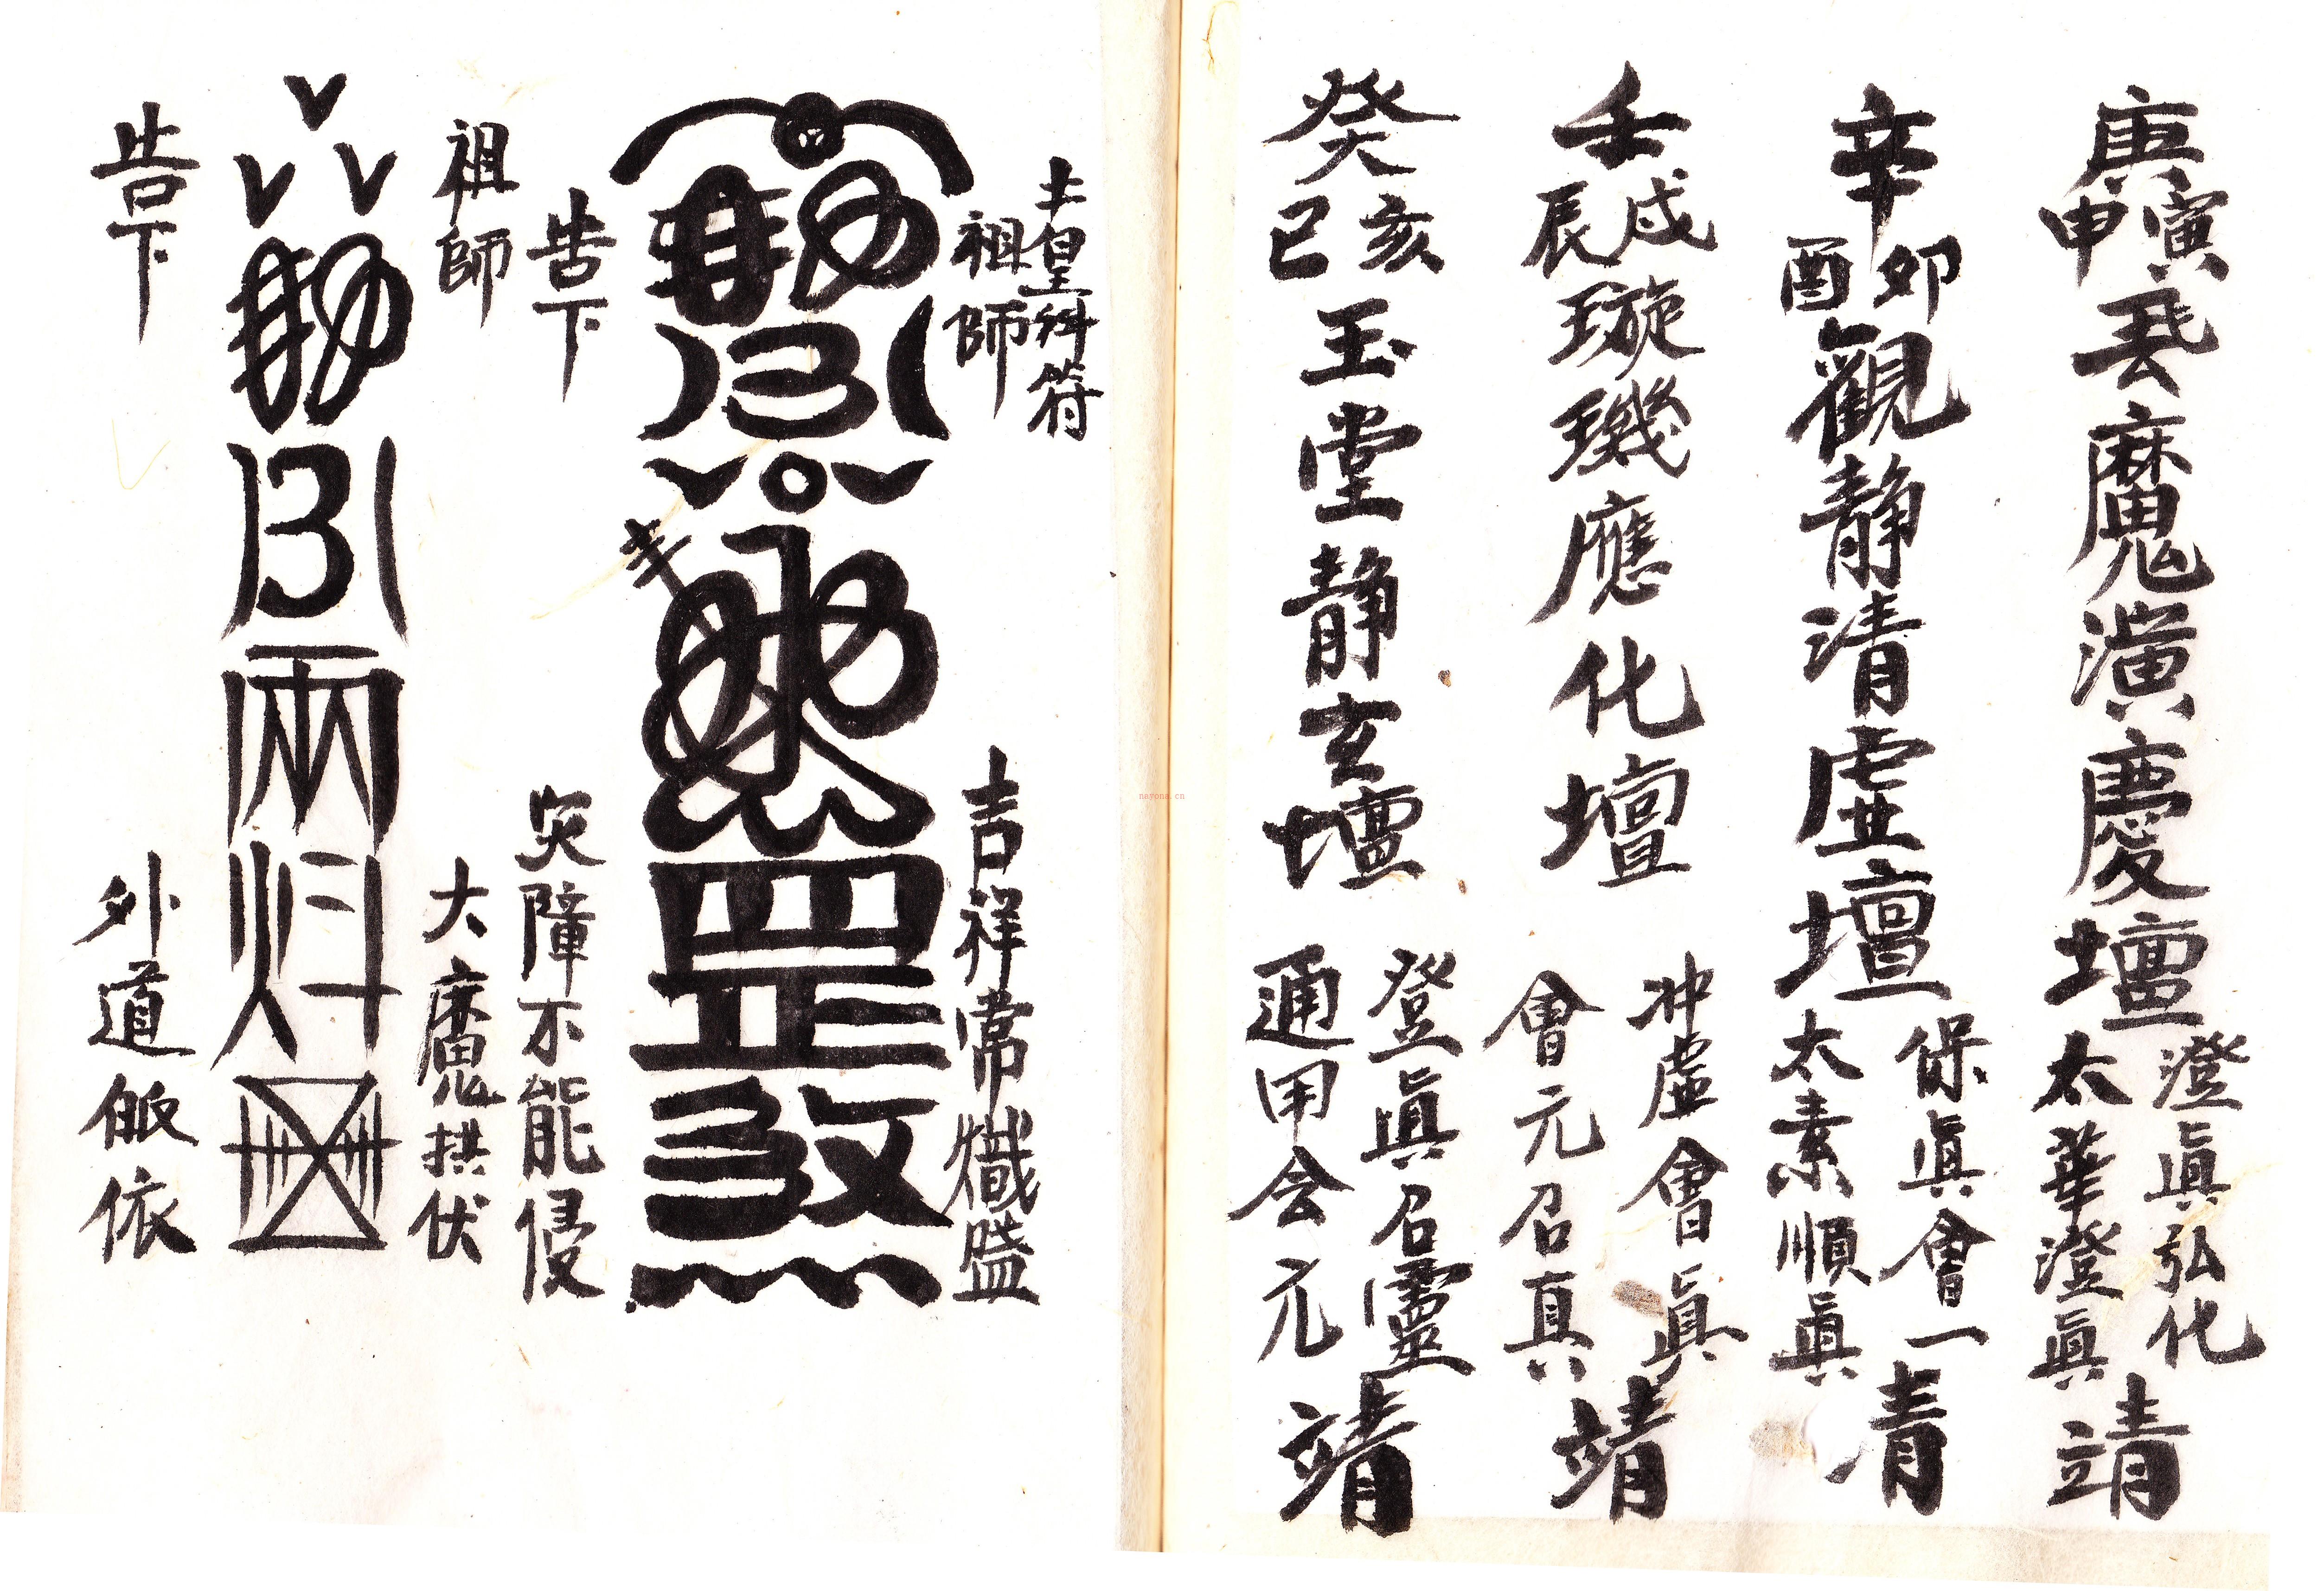 庚寅申兲魔演慶壇澄眞弘化太華澄眞靖
辛卯酉觀静清虚壇保眞會一太素順眞青
壬戌辰璇璣應化壇冲虚會眞會元召真靖
癸亥巳玉堂静玄壇登眞召靈通甲会元靖
土皇科符
祖師 吉祥常熾盛
告下 災障不能侵
祖師 大魔拱伏
告下 外道皈依
nayona.cn